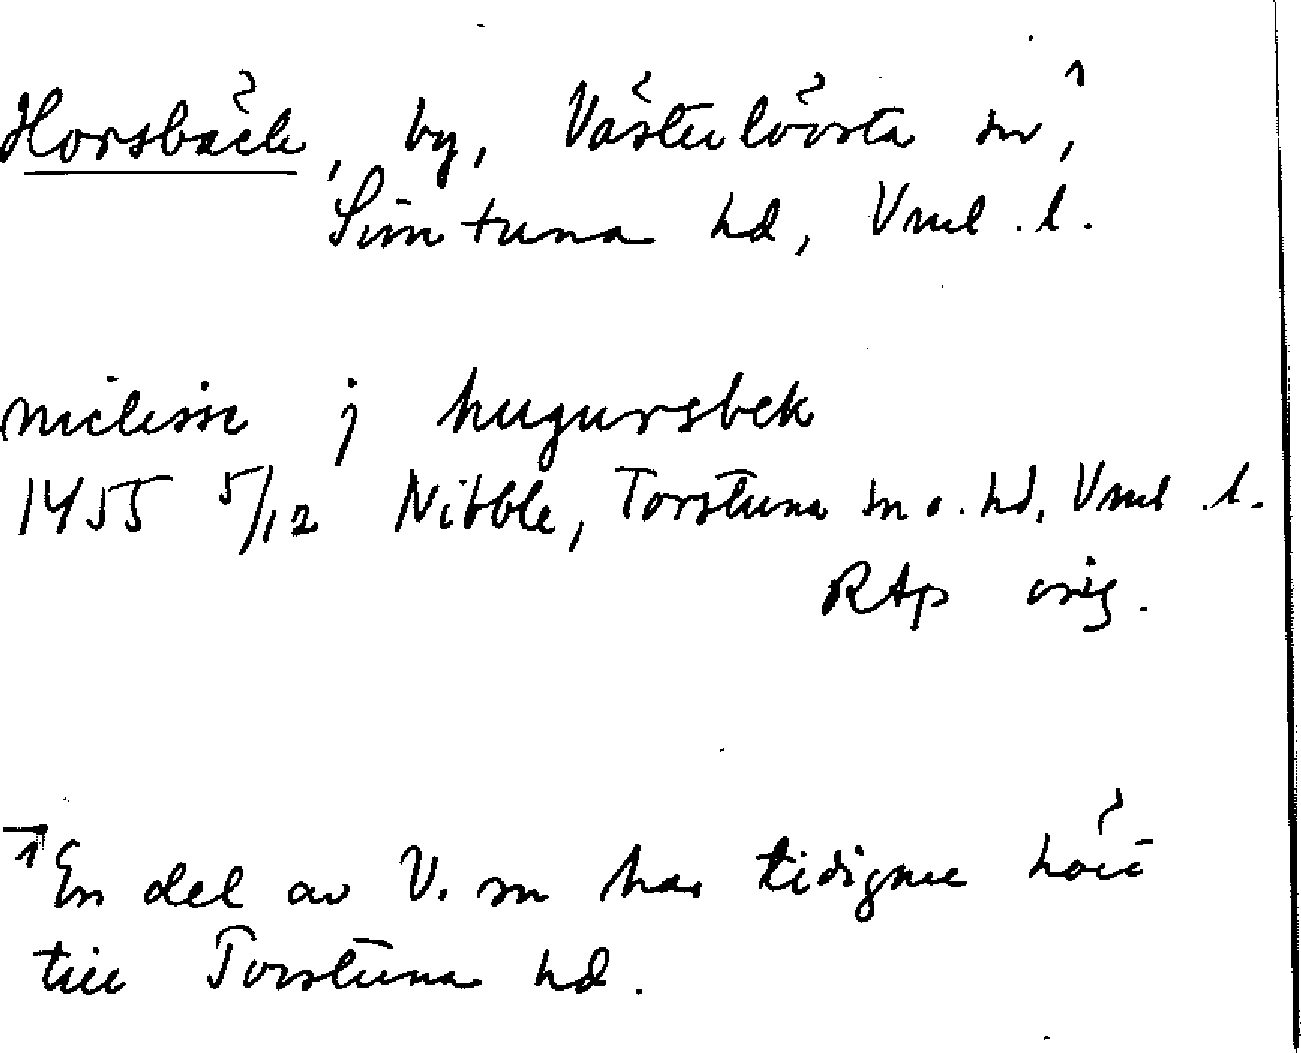 Horsbäck, by, Västerlövsta sn,¹
Simtuna hd, Vml. l.
nielisse j hugursbek
1455 5/12 Nibble, Torstuna sn o. hd, Vml. l.
RAp orig.
¹ En del av V. sn har tidigare hört
till Torstuna hd.